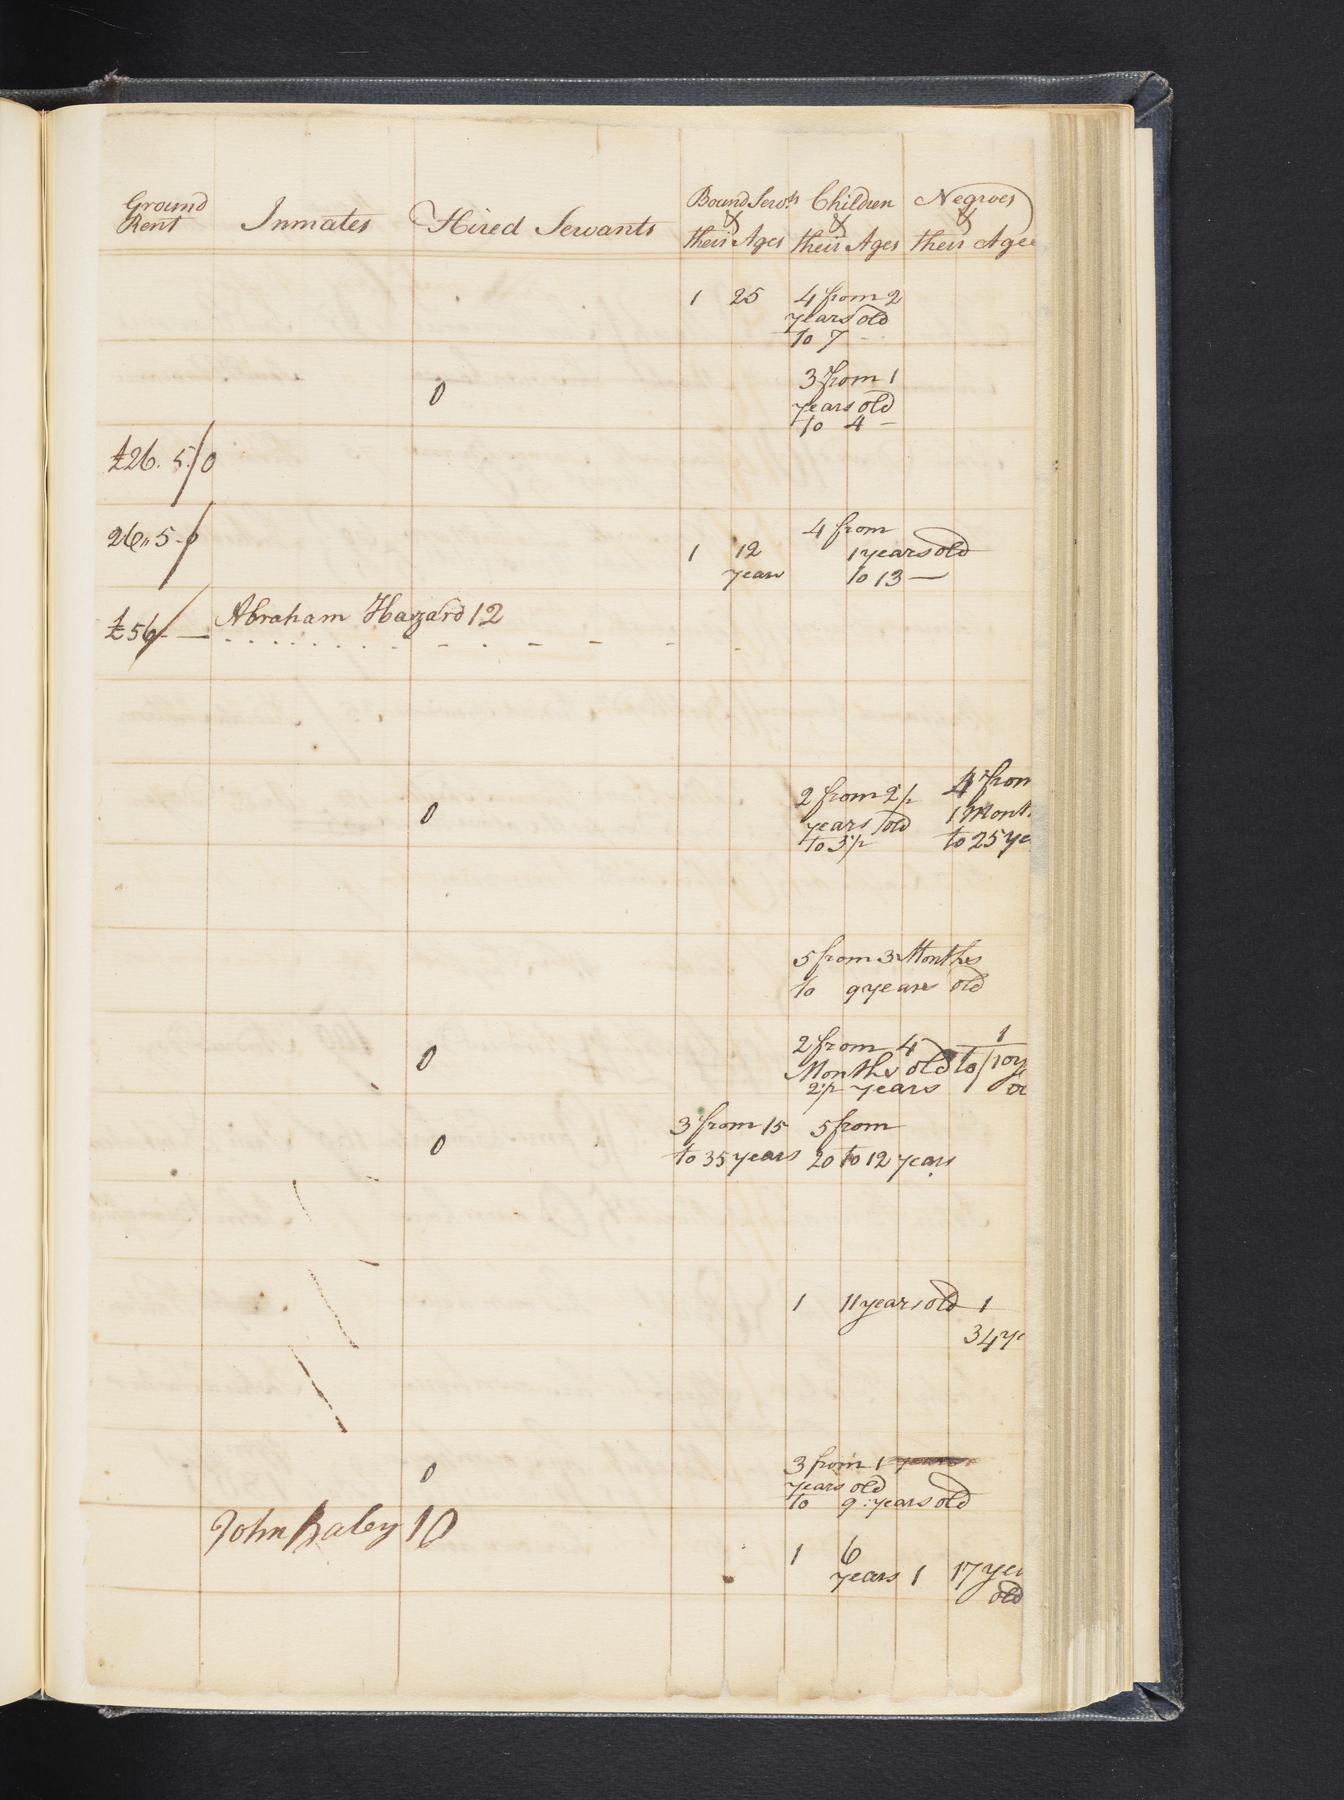 Ground Rent
Inmates
Hired Servants
Bound Servts & their Ages
Children & their Ages
Negroes & their Ages
1 25 4 from 2
years old
to 7
0 3 from 1
years old
to 4 –
£26. 5. 0
26,, 5 - 0 4 from
1 12 1 years old
years to 13 —
£56 — Abraham Hazard 12
2 from 2 1/2 4 from
0 years old 1 Month
to 5 1/2 to 25 ye
5 from 3 Months
to 9 years old
2 from 4 1
0 Months old to 10 y
2 1/2 years
3 from 15 5 from
0 to 35 years 20 to 12 years
1 11 years old 1
34 ye
0 3 from 1
years old
to 9 years old
John Baley 10
1 6
years 1 17 yea
old